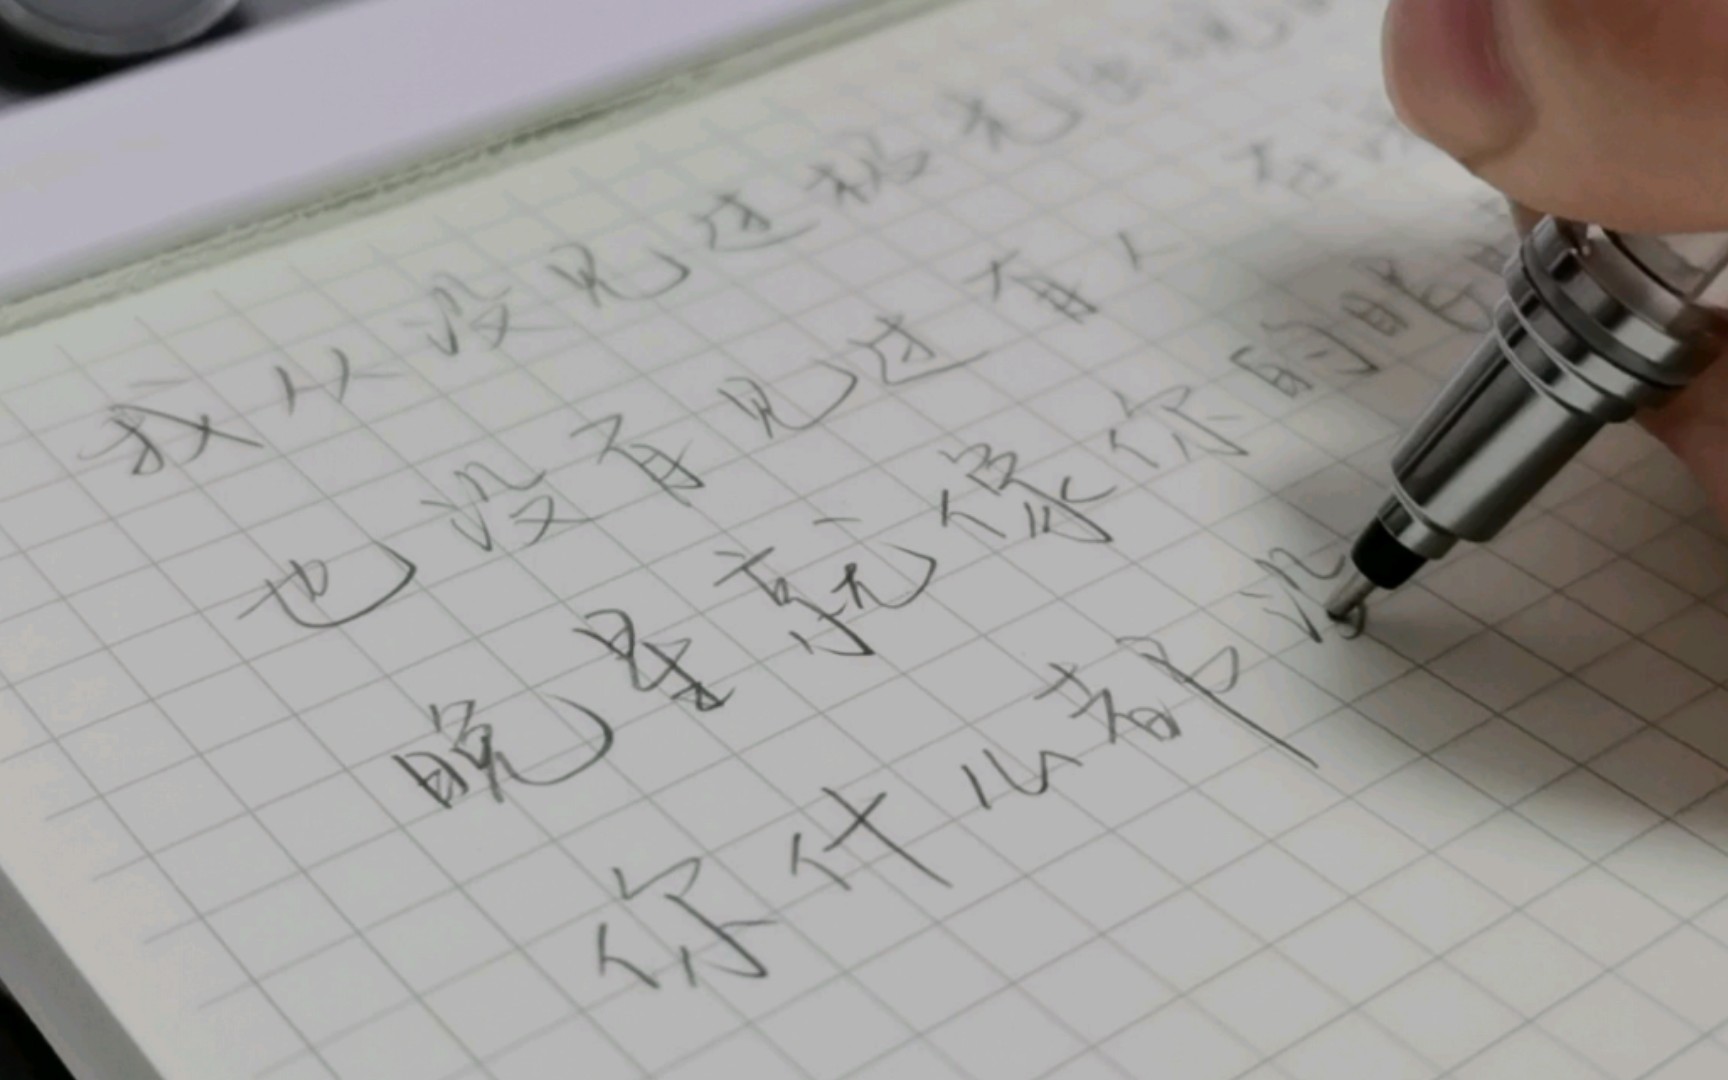 我从没见过极光出现
也没有见过有人 在深
晚星就像你的眼睛
你什么都没